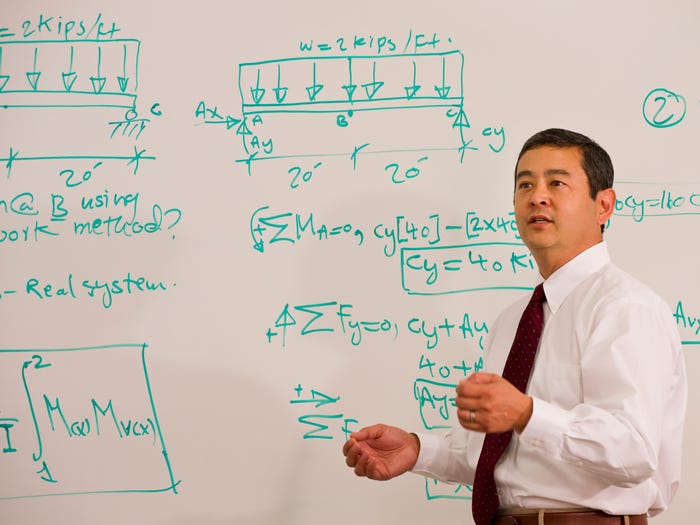 = 2Kips/ft
C
20'
@ B using
work method?
Real system.
2
∫
1
M(x) Mv(x)
I
w = 2Kips/ft.
Ax
A
B
C
Ay
Cy
20'
20'
2
+ ∑ MA=0, Cy[40] - [2x40
Cy = 40 Ki
+ ∑ Fy=0, Cy + Ay
40 + A
Ay =
+
∑ F